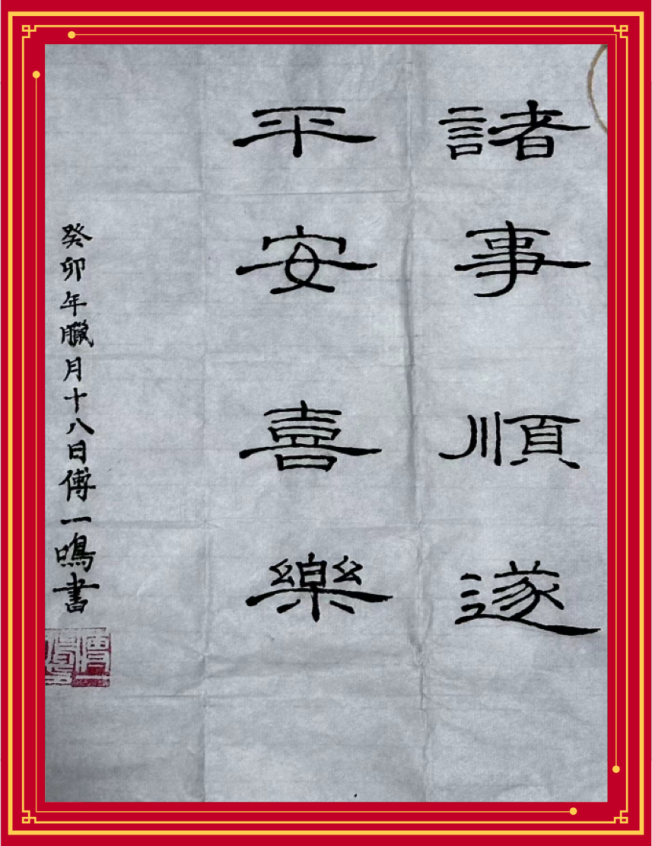 諸事順遂
平安喜樂
癸卯年臘月十八日傅一鳴書